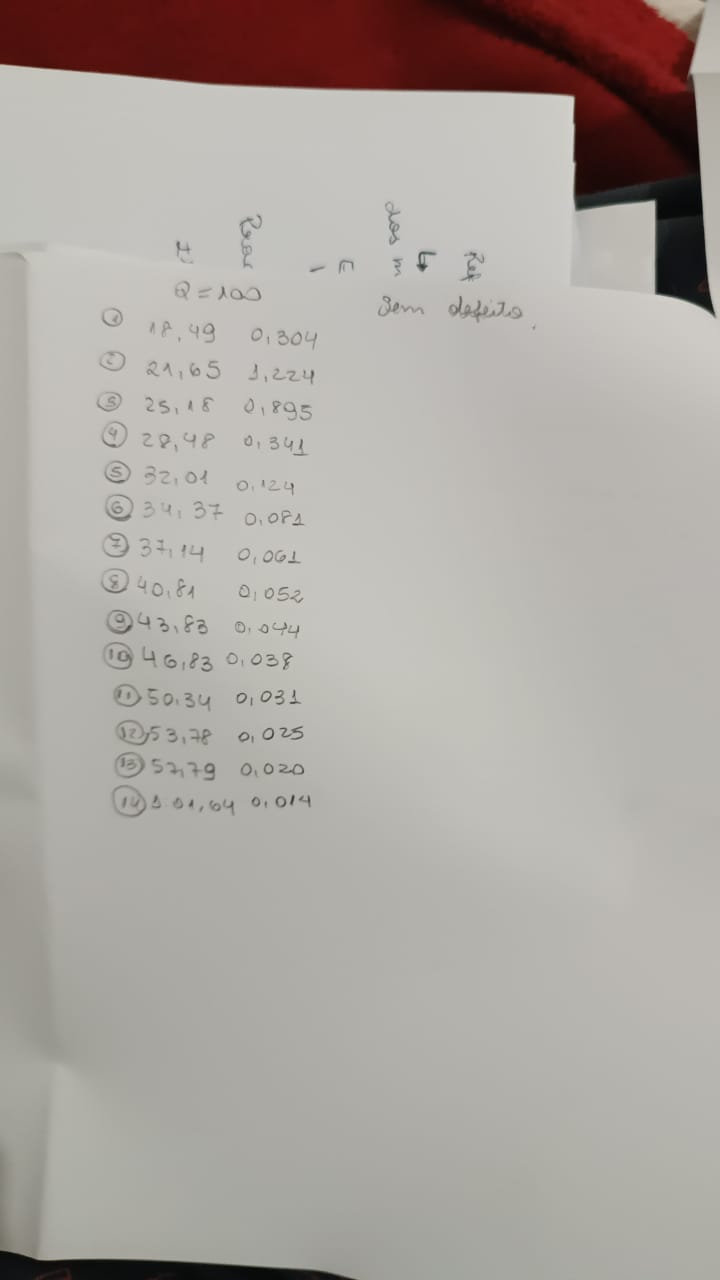 Q=100
Sem defeito.
① 18,49 0,304
② 21,65 1,224
③ 25,18 0,895
④ 28,48 0,341
⑤ 32,01 0,124
⑥ 34,37 0,081
⑦ 37,14 0,061
⑧ 40,81 0,052
⑨ 43,83 0,044
⑩ 46,83 0,038
⑪ 50,34 0,031
⑫ 53,78 0,025
⑬ 57,79 0,020
⑭ 0,014